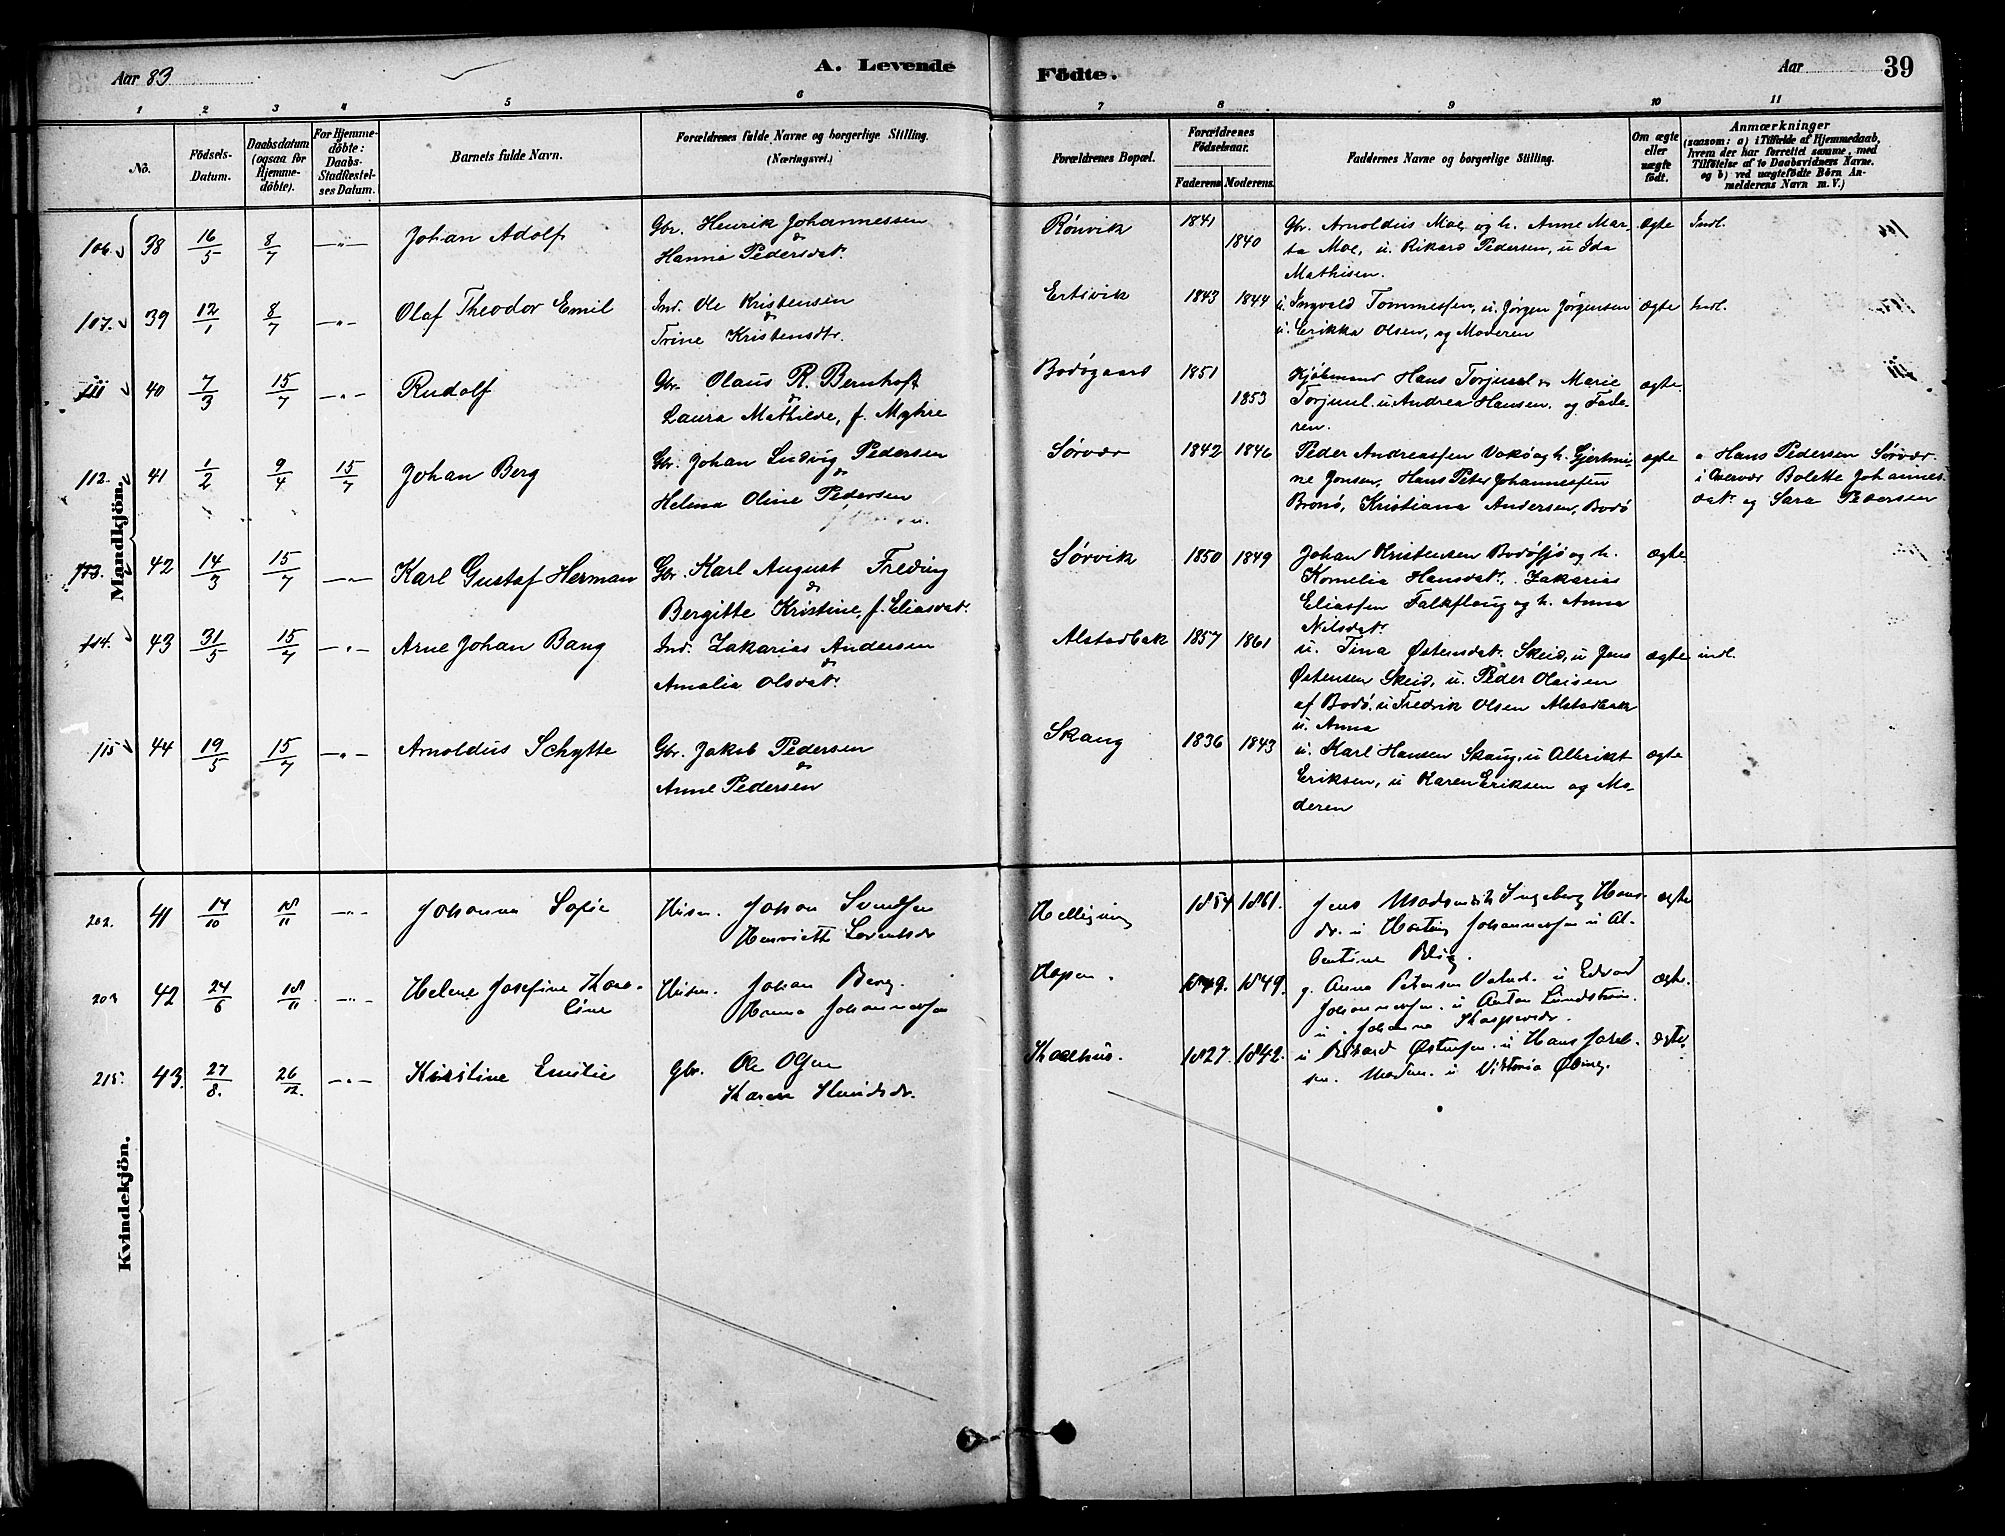 Aar 83
A. Levende
Födte.
Aar
39
1 2 3 4 5 6 7 8 9 10 11
No.
Födsels-Datum.
Daabsdatum (ogsaa for Hjemmedöbte).
For Hjemmedöbte: Daabs-Stadfæstelses Datum.
Barnets fulde Navn.
Forældrenes fulde Navne og borgerlige Stilling. (Næringsvei.)
Forældrenes Bopæl.
Forældrenes Födselsaar.
Faderens Moderens.
Faddernes Navne og borgerlige Stilling.
Om ægte eller uægte födt.
Anmærkninger
(saasom: a) i Tilfælde af Hjemmedaab, hvem der har forrettet samme, med Tilföielse af to Daabsvidners Navne. og b) ved uægtefödte Börn Anmelderens Navn m. V.)
Mandkjön.
106. 38 16/5 8/7 —"— Johan Adolf
Gbr. Henrik Johannessen
Hanna Pedersdat.
Rönvik 1841 1840
Gbr. Arnoldus Moe og h. Anne Mar-
ta Moe, u. Rikard Pedersen, u Ida
Mathisen.
ægte Indl.
107. 39 12/1 8/7 —"— Olaf Theodor Emil
Ind. Ole Kristensen
Trine Kristensdtr.
Ertivik 1843 1844
u. Ingvald Tommessen, u. Jörgen Jörgensen
u. Erikka Olsen, og Moderen
ægte Indl.
111 40 7/3 15/7 —"— Rudolf
Gbr. Olaus R. Bernhoft
Laura Mathilde, f. Myhre
Bodögaard 1851 1853
Kjöbmand Hans Torjusel & Marie
Torjusel. u Andrea Hansen. og Fade-
ren.
ægte
111
112. 41 1/2 9/4 15/7 Johan Berg
Gbr. Johan Ludvig Pedersen
Helma Oline Pedersen
Sörvær 1842 1846
Peder Andreassen Vokö og h. Gjertmi-
ne Jonsen, Hans Peter Johannessen
Bronö, Kristiana Andersen, Bodö
ægte
a Hans Pedersen Sörvær
i Overvær Bolette Johannes-
dat. og Sara Pedersen
113. 42 14/3 15/7 —"— Karl Gustaf Herman
Gbr. Karl August Freding
Bergitte Kristine, f. Eliasdat.
Sörvik 1850 1849
Johan Kristensen Bodösjö og h.
Kornelia Hansdat., Zakarias
Eliassen Falkflaug og h. Anna
Nilsdat.
ægte
114. 43 31/5 15/7 —"— Arne Johan Bang
Ind. Zakarias Andersen
Amalia Olsdat.
Alstadbak 1857 1861
u. Tina Östensdat. Skeid, u Jens
Östensen Skeid, u. Peder Olaisen
af Bodö. u Fredrik Olsen Alstadbak
u. Anna
ægte indl.
115 44 19/5 15/7 —"— Arnoldus Schytte
Gbr. Jakob Pedersen
Anne Pedersen
Skaug 1836 1843
u. Karl Hansen Skaug, u Albrikt
Eriksen, u Karen Eriksen og Mo-
deren
ægte
Kvindekjön.
202. 41 14/10 18/11 —"— Johanna Sofie
Husm. Johan Svendsen
1854 1861.
ægte
203 42 24/6 18/11 —"— Helene Josefine Karo-
line
Husm. Johan Berg
Hanna Johannessen
Hopen. 1849. 1849.
g. Anna Petersen u Edvard
Johannessen. u Anton Lundström.
u. Johanna Kaspersdr.
ægte.
215. 43. 27/8. 26/12. —"— Kristine Emilie
Gbr. Ole Olsen
Karen
1827. 1842.
u Rikard Östensen. u Hans Jakob-
sen. u Viktoria
ægte.